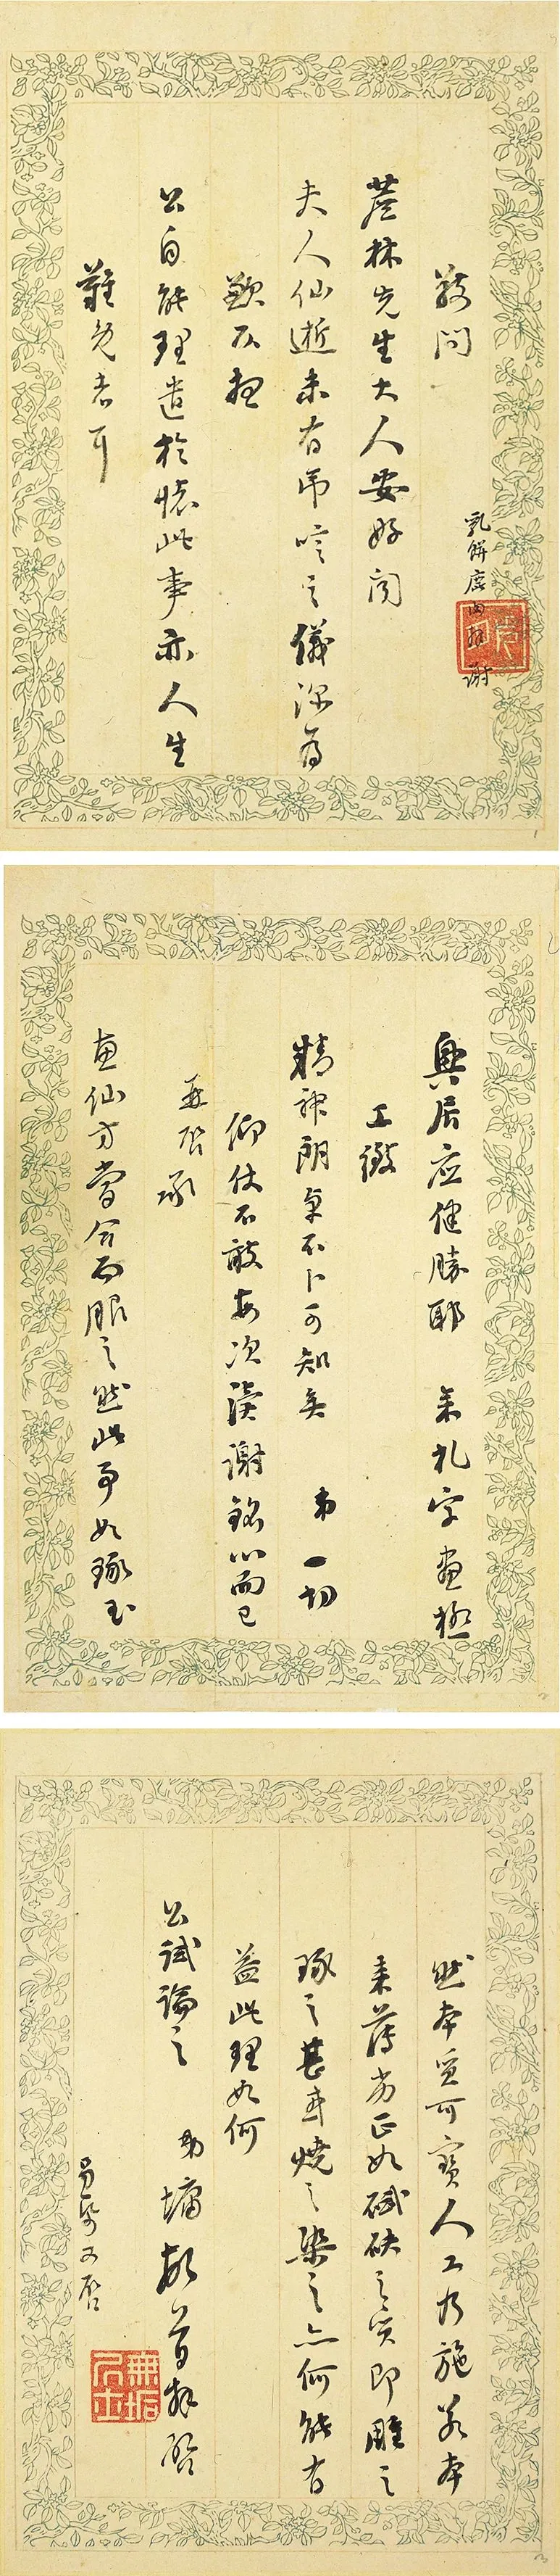 乳餅鹿肉拜謝
敬問
蘆林先生大人安好聞
夫人仙逝未有弔唁之儀深為
歉仄想
公自能理遣於懷此事亦人生
難免者耳
興居應健勝耶 來札字畫極
工緻
精神朗卓不卜可知矣 弟一切
仰仗不敢每次瀆謝銘心而已
再啓承
惠仙方當合而服之然此事如琢玉
然本質可寶人工乃施若本
來薄劣正如碔砆之質即雕之
琢之甚或燒之染之亦何能有
益此理如何
公試論之 弟墉頓首拜啓
又啓